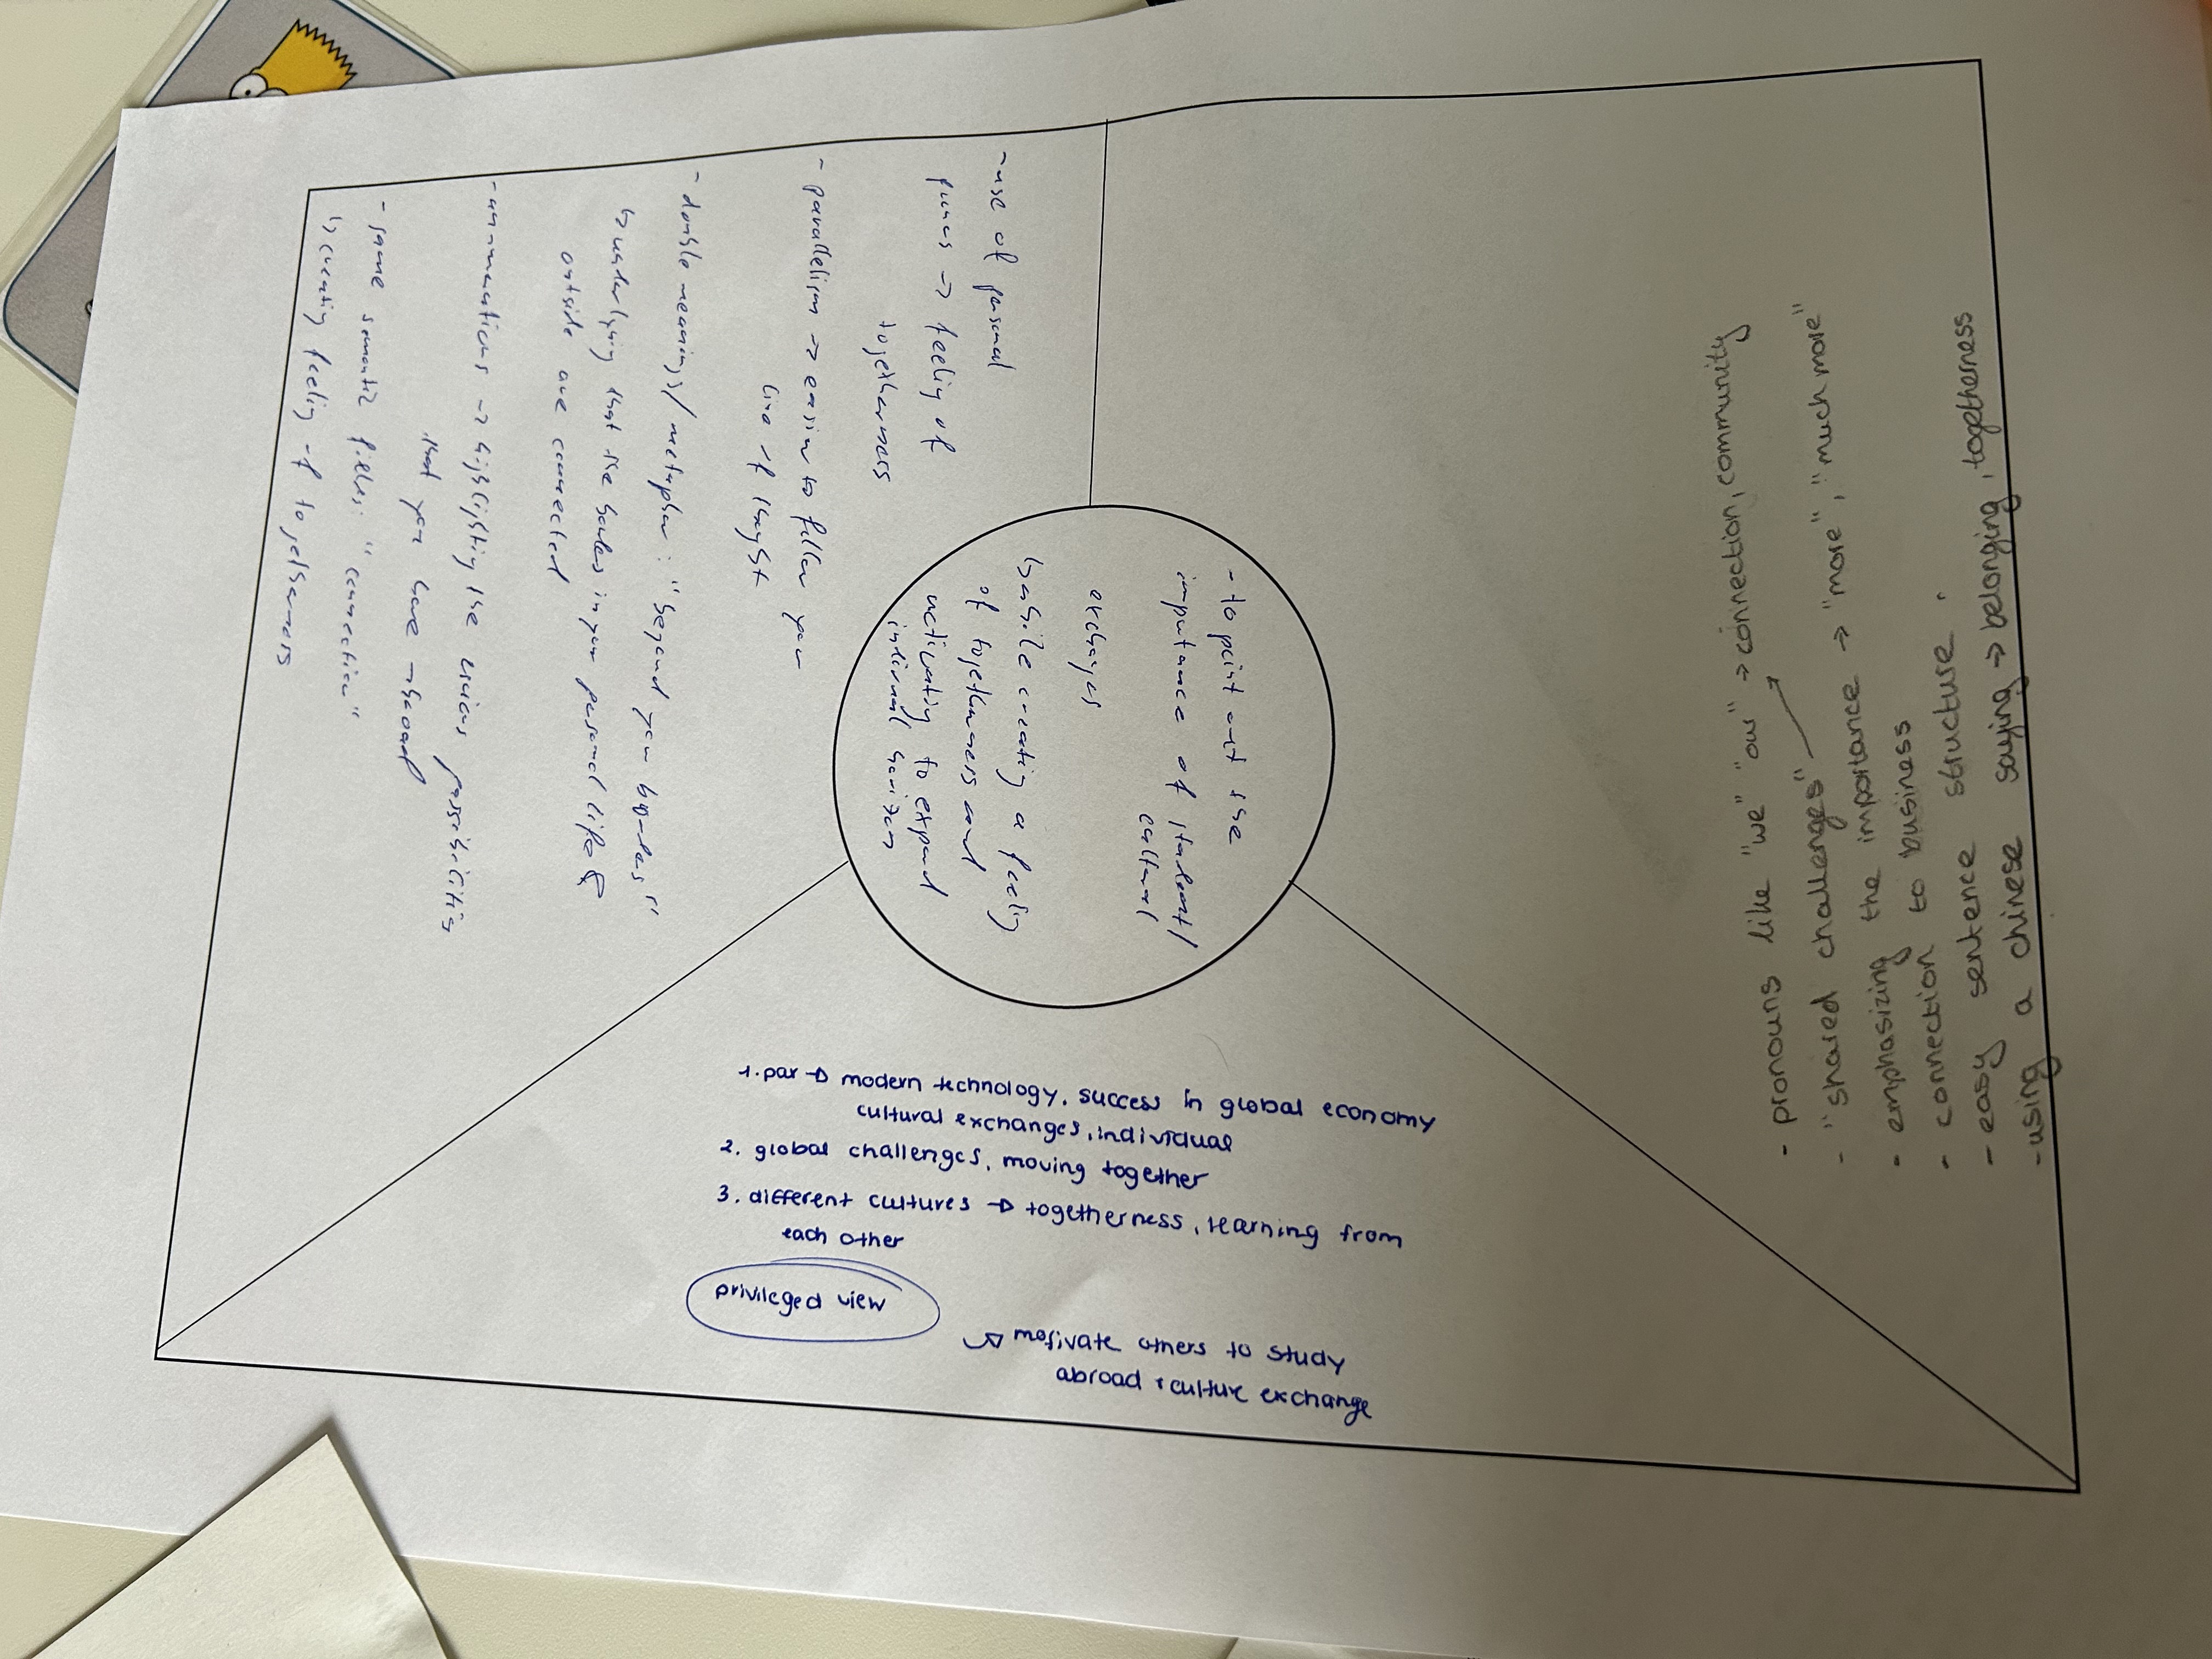 - use of personal
→ feeling of
togetherness
- parallelism → easier to follow your
line of thought
- double meanings/metaphor: "beyond your
↳ underlying that the in your personal life &
outside are connected
→ highlighting the possibilities
that you have
- same semantic fields: "connection"
↳ creating feeling of togetherness
- to point out the
importance of student/
cultural
exchanges
↳ while creating a feeling
of togetherness and
to expand
horizon
1. par → modern technology, success in global economy
cultural exchanges, individual
2. global challenges, moving together
3. different cultures → togetherness, learning from
each other
privileged view
↳ motivate others to study
abroad + culture exchange
- pronouns like "we" "our" → connection, community
- "shared challenges"
- emphasizing the importance → "more", "much more"
- connection to business
- easy sentence structure
- using a chinese saying → belonging, togetherness